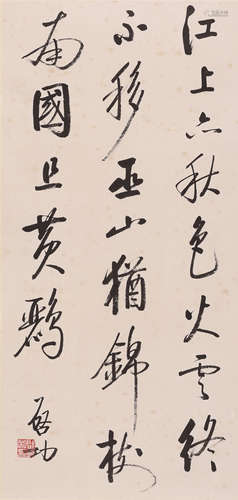 江上亦秋色火雲終
不移巫山猶錦樹
南國且黄鸝
啓功